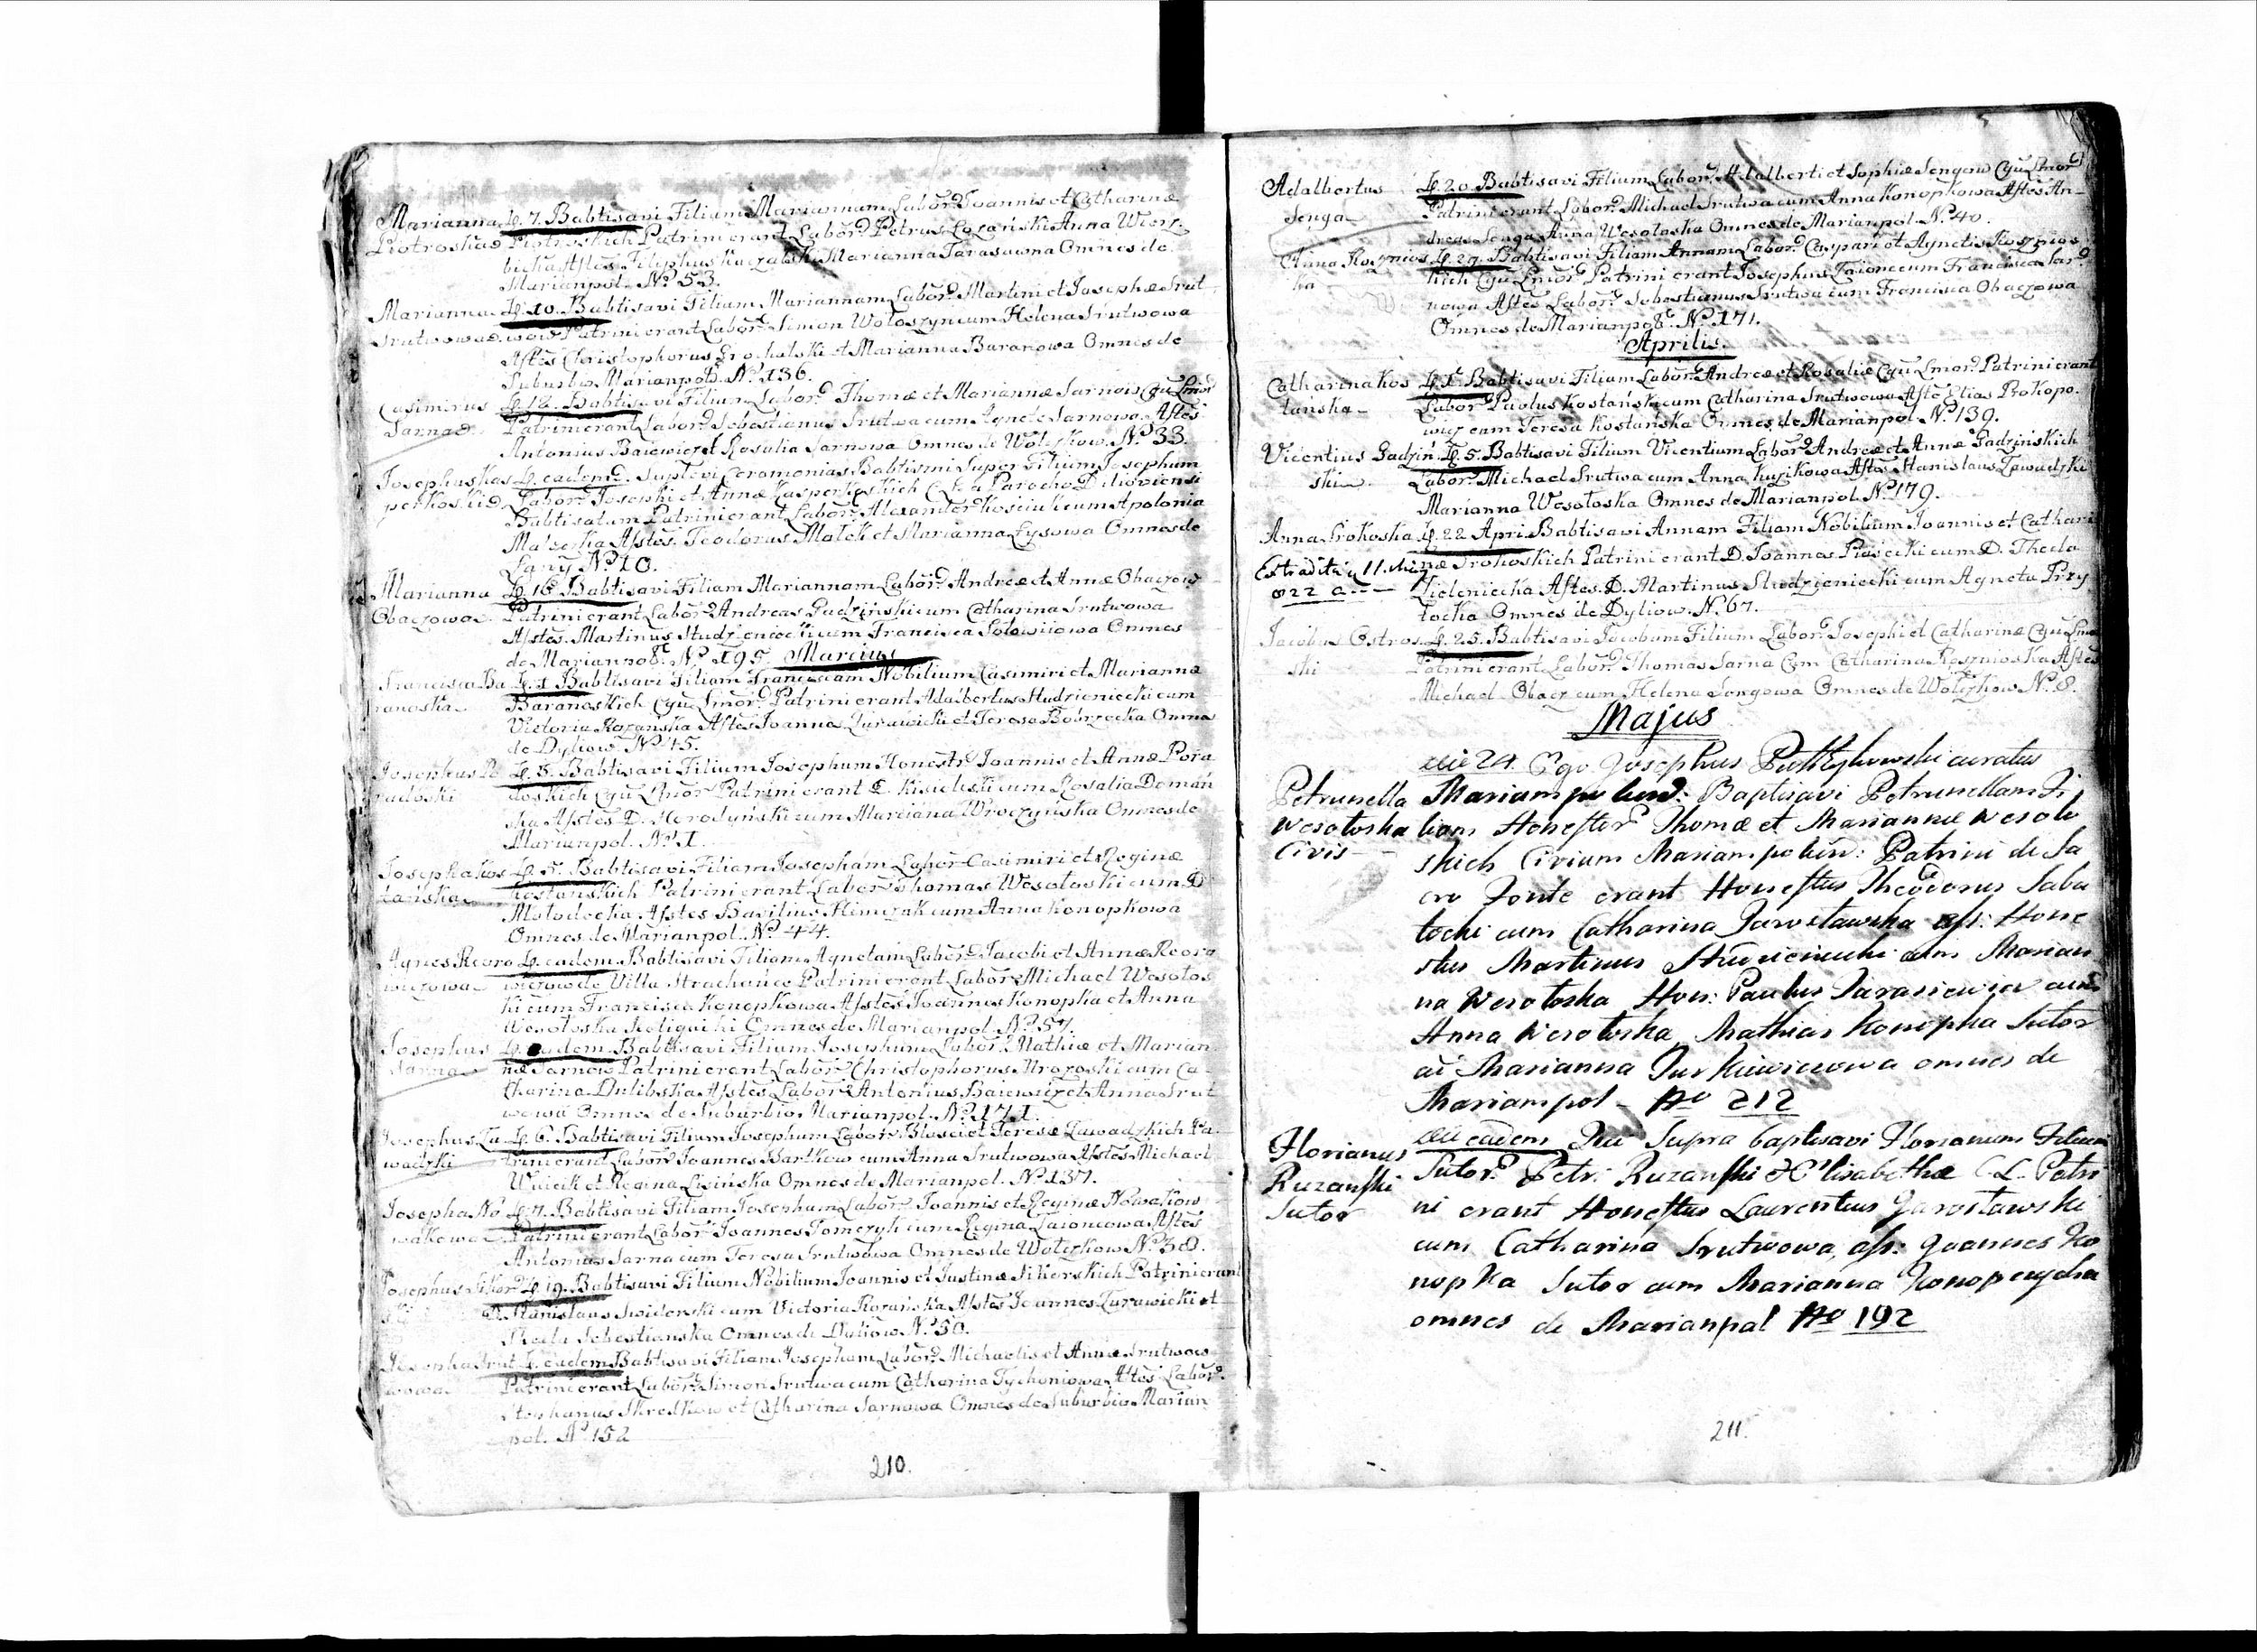 Marianna D. 7. Babtisavi Filiam Mariannam Labor. Joannis et Catharinæ
Piotroska Piotroskich Patrini erant Labor. Petrus Łozański Anna Wierz-
bicka Astes Filiphus Kuczabski Marianna Tarasowna Omnes de
Marianpol. No. 53.
Marianna D. 10. Babtisavi Filiam Mariannam Labor. Martini et Josephæ Srut
Srutwowa wow Patrini erant Labor. Simon Wołoszyn cum Helena Srutwowa
Astes Christophorus Grochalski et Marianna Baranowa Omnes de
Suburbio Marianpol. No. 136.
Casimirus D. 12. Babtisavi Filium Labor. Thomæ et Mariannæ Sarnow
Sarna Patrini erant Labor. Sebestianus Srutwa cum Agnete Sarnowa Astes
Antonius Baiewicz et Rosalia Sarnowa Omnes de Wołczkow. No. 33.
Josephus Kas D. eadem. Suplevi Ceremonias Babtismi Super Filium Josephum
perkoski Labor. Josephi et Annæ Kasperkoskich a Parocho Diliowiensi
Babtisatum Patrini erant Labor. Alexander Kosciuk cum Apolonia
Malecka Astes. Teodorus Małek et Marianna Łysowa Omnes de
No. 10.
Marianna D. 16. Babtisavi Filiam Mariannam Labor. Andreæ et Annæ Obaczow
Obaczowa Patrini erant Labor. Andreas Gadziński cum Catharina Srutwowa
Astes. Martinus cum Francisca Omnes
de Marianpol. No. 195. Marcius
Francisca Ba D. 1 Babtisavi Filiam Franciscam Nobilium Casimiri et Mariannæ
ranoska Baranoskich Patrini erant Adalbertus Studzieniecki cum
Victoria Rozańska Astes Joannes Zurawicki et Teresa Bobrzecka Omnes
de Dyliow. No. 45.
Josephus Po D. 3. Babtisavi Filium Josephum Honestr. Joannis et Annæ Pora
radoski doskich Patrini erant D. Kisieleski cum Rosalia Domań
ska Astes D. Horodyński cum Marciana Wroczyńska Omnes de
Marianpol. No. 1.
Josepha Kos D. 5. Babtisavi Filiam Josepham Labor. Casimiri et Reginæ
tańska Kostańskich Patrini erant Labor. Thomas Wesołoski cum D.
Mołodecka Astes Basilius Klimczak cum Anna Konopkowa
Omnes de Marianpol. No. 44.
Agnes Reoro D. eadem. Babtisavi Filiam Agnetam Labor. Jacobi et Annæ Reoro
wiczowa wiczow de Villa Strachańce Patrini erant Labor. Michael Wesołos
ki cum Francisca Konopkowa Astes Joannes Konopka et Anna
Wesołoska Omnes de Marianpol. No. 57.
Josephus D. eadem. Babtisavi Filium Josephum Labor. Mathiæ et Marian
Sarna næ Sarnow Patrini erant Labor. Christophorus Mrozoski cum Ca
tharina Dulibska Astes Labor. Antonius Baiewicz et Anna Srut
wowa Omnes de Suburbio Marianpol. No. 171.
Josephus Za D. 6. Babtisavi Filium Josephum Labor. Blasei et Teresæ Zawadzkich Pa
wadzki trini erant Labor. Joannes Bartkow cum Anna Srutwowa Astes Michael
Wuicik et Regina Lisińska Omnes de Marianpol. No. 137.
Josepha No D. 7. Babtisavi Filiam Josepham Labor. Joannis et Reginæ Nowakow
wakowa Patrini erant Labor. Joannes Tomczyk cum Regina Zaioncowa Astes
Antonius Sarna cum Teresa Srutwowa Omnes de Wołczkow No. 38.
Josephus Sikor D. 19. Babtisavi Filium Nobilium Joannis et Justinæ Sikorskich Patrini erant
ski D. Stanislaus Swiderski cum Victoria Rozańska Astes Joannes Zurawicki et
Thecla Sebestianska Omnes de Dyliow No. 50.
Josepha Srut D. eadem Babtisavi Filiam Josepham Labor. Michaelis et Annæ Srutwow
wowa Patrini erant Labor. Simon Srutwa cum Catharina Tychoniowa Astes Labor.
Stephanus Skredkow et Catharina Sarnowa Omnes de Suburbio Marian
pol. No. 152
210.
Adalbertus D. 20. Babtisavi Filium Labor. Adalberti et Sophiæ Sengow
Senga Patrini erant Labor. Michael Srutwa cum Anna Konopkowa Astes An-
dreas Senga Anna Wesołoska Omnes de Marianpol. No. 40.
Anna Roznios D. 27. Babtisavi Filiam Annam Labor. Caspari et Agnetis Roznios
ka kich Patrini erant Josephus Zaionc cum Francisca Sar
nowa Astes Labor. Sebestianus Srutwa cum Francisca Obaczowa
Omnes de Marianpol. No. 171.
Aprilis.
Catharina Kos D. 1. Babtisavi Filiam Labor. Andreæ et Rosaliæ Patrini erant
tańska Labor. Paulus Kostański cum Catharina Srutwowa Aste Elias Prokopo-
wicz cum Teresa Kostańska Omnes de Marianpol No. 139.
Vicentius Gadziń D. 5. Babtisavi Filium Vicentium Labor. Andreæ et Annæ Gadzińskich
ski Labor. Michael Srutwa cum Anna Kuzikowa Astes Stanislaus Zawadzki
Marianna Wesołoska Omnes de Marianpol No. 179.
Anna Srokoska D. 22 Apri. Babtisavi Annam Filiam Nobilium Joannis et Cathari
Extradita 11. næ Srokoskich Patrini erant D. Joannes Piasecki cum D. Thecla
822 a Zieleniecka Astes. D. Martinus Studzieniecki cum Agneta Przy
tocka Omnes de Dyliow. No. 67.
Jacobus Ostros D. 25. Babtisavi Jacobum Filium Labor. Josephi et Catharinæ
ski Patrini erant Labor. Thomas Sarna cum Catharina Rozznioska Astes
Michael Obacz cum Helena Sengowa Omnes de Wołczkow No. 8.
Majus
Die 24. Ego Josephus curatus
Petrunella Mariampolien: Baptisavi Petrunellam Fi
Wesołoska liam Honestor. Thomæ et Mariannæ Wesoło
Civis skich Civium Mariampolien: Patrini de Sa
cro Fonte erant Honestus Theodorus Saba
tocki cum Catharina Jarosławska ass: Hone
stus Martinus Studzieniecki cum Marian
na Wesołoska Hon: Paulus Tarasiewicz cum
Anna Wesołoska Mathias Konopka Sutor
cum Marianna Jurkiewiczowa omnes de
Mariampol - No 212
Florianus Die eadem Qui Supra baptisavi Florianum Filium
Ruzanski Sutor. Petri Ruzanski & Elisabethæ C. L. Patri
Sutor ni erant Honestus Laurentius Jarosławski
cum Catharina Srutwowa, ass: Joannes Ko
nopka Sutor cum Marianna Konopczycha
omnes de Marianpol No 192
211.